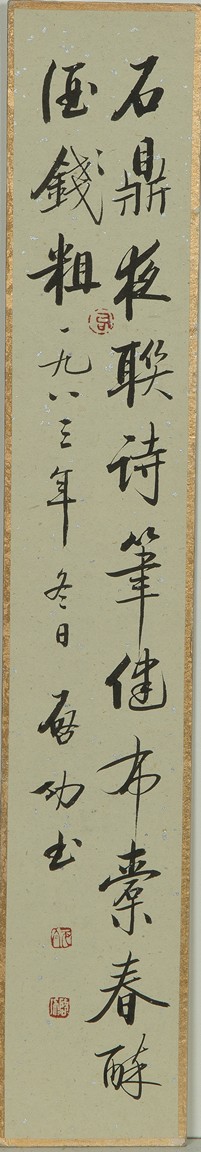 石鼎夜聯詩筆健布囊春醉
酒錢粗一九八三年冬日啟功書